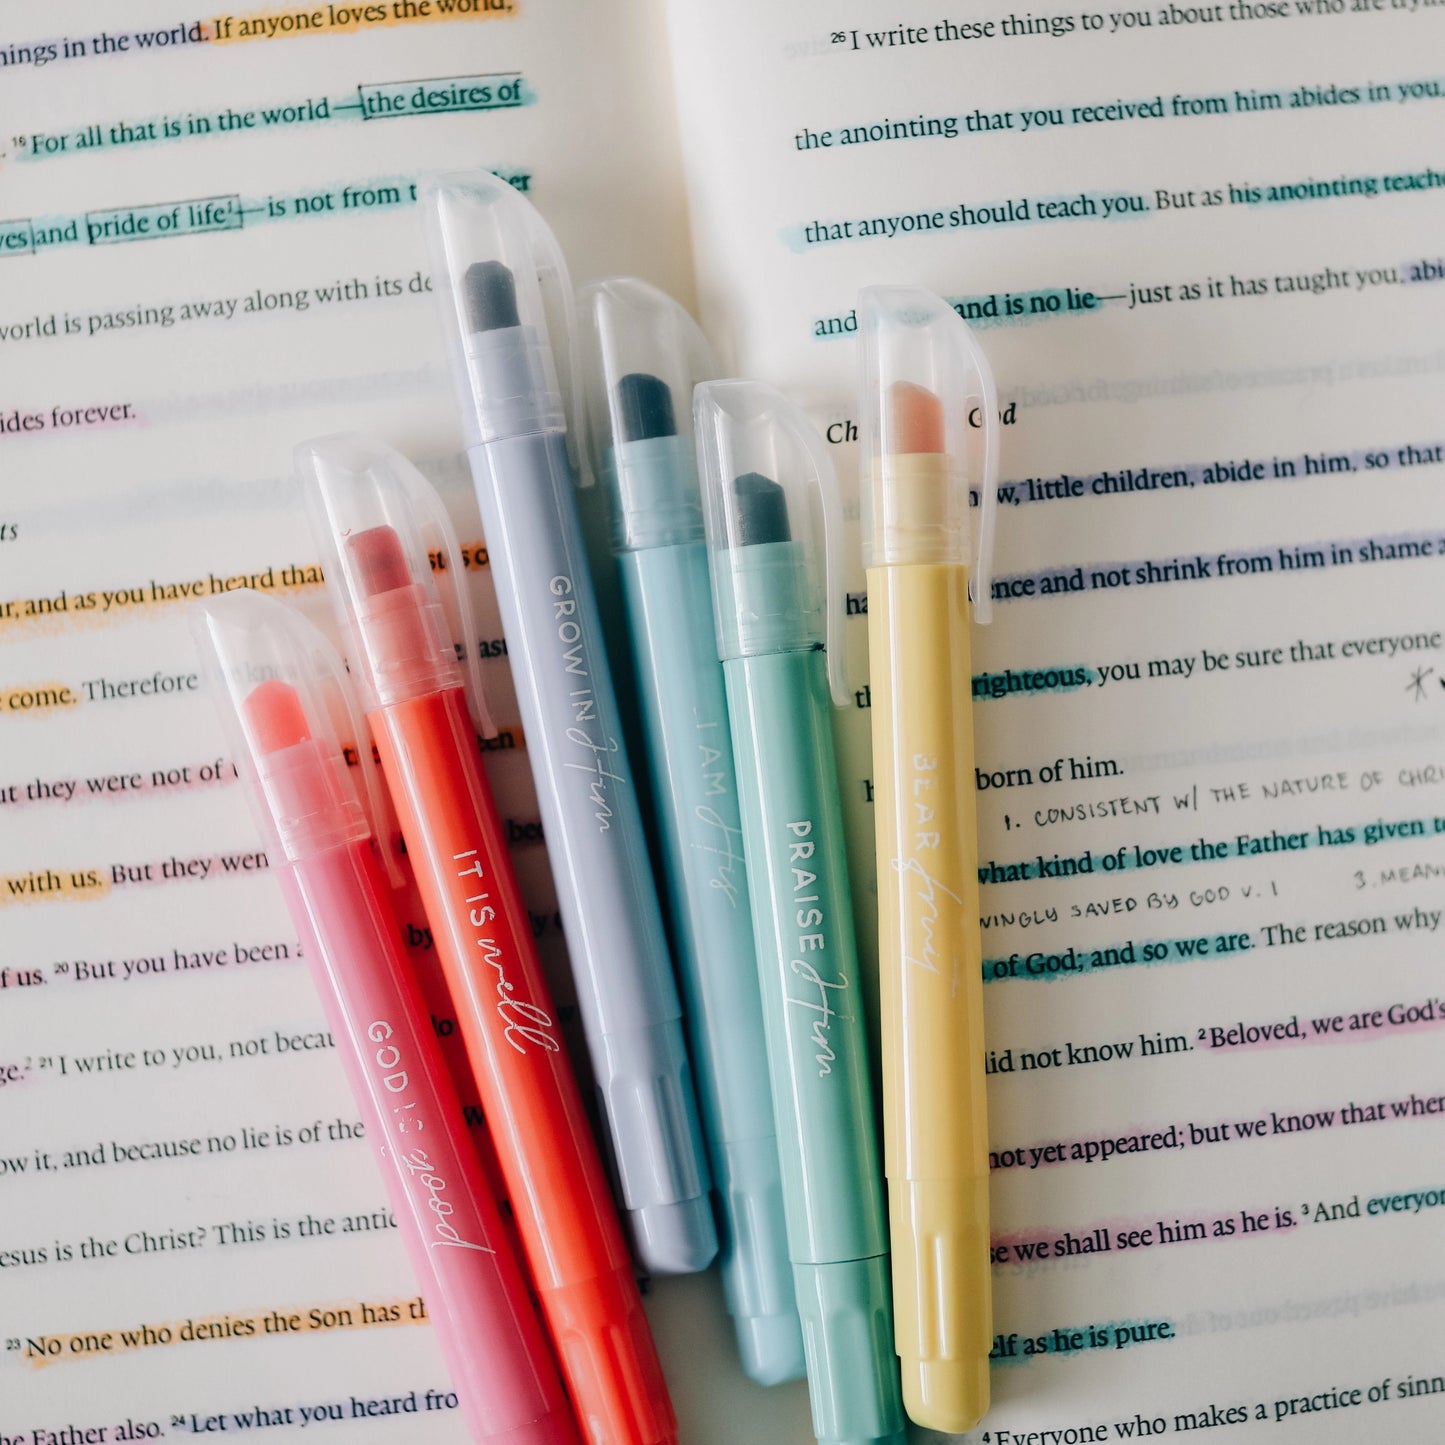 things in the world. If anyone loves the world,
16 For all that is in the world—the desires of
and pride of life1—is not from
world is passing away along with its
forever.
and as you have heard that
come. Therefore
but they were not of
with us. But they
of us. 20 But you have been
2 21 I write to you, not
it, and because no lie is of the
Jesus is the Christ? This is the
23 No one who denies the Son has
the Father also. 24 Let what you heard
26 I write these things to you about those who are
the anointing that you received from him abides in you,
that anyone should teach you. But as his anointing
and and is no lie—just as it has taught you,
little children, abide in him, so that
and not shrink from him in shame
righteous, you may be sure that everyone
born of him.
1. CONSISTENT W/ THE NATURE OF
what kind of love the Father has given
SAVED BY GOD V. 1 3.
of God; and so we are. The reason why
did not know him. 2 Beloved, we are God's
not yet appeared; but we know that when
we shall see him as he is. 3 And
as he is pure.
4 Everyone who makes a practice of
GOD IS good
IT IS well
GROW IN Him
I AM His
PRAISE Him
BEAR fruit